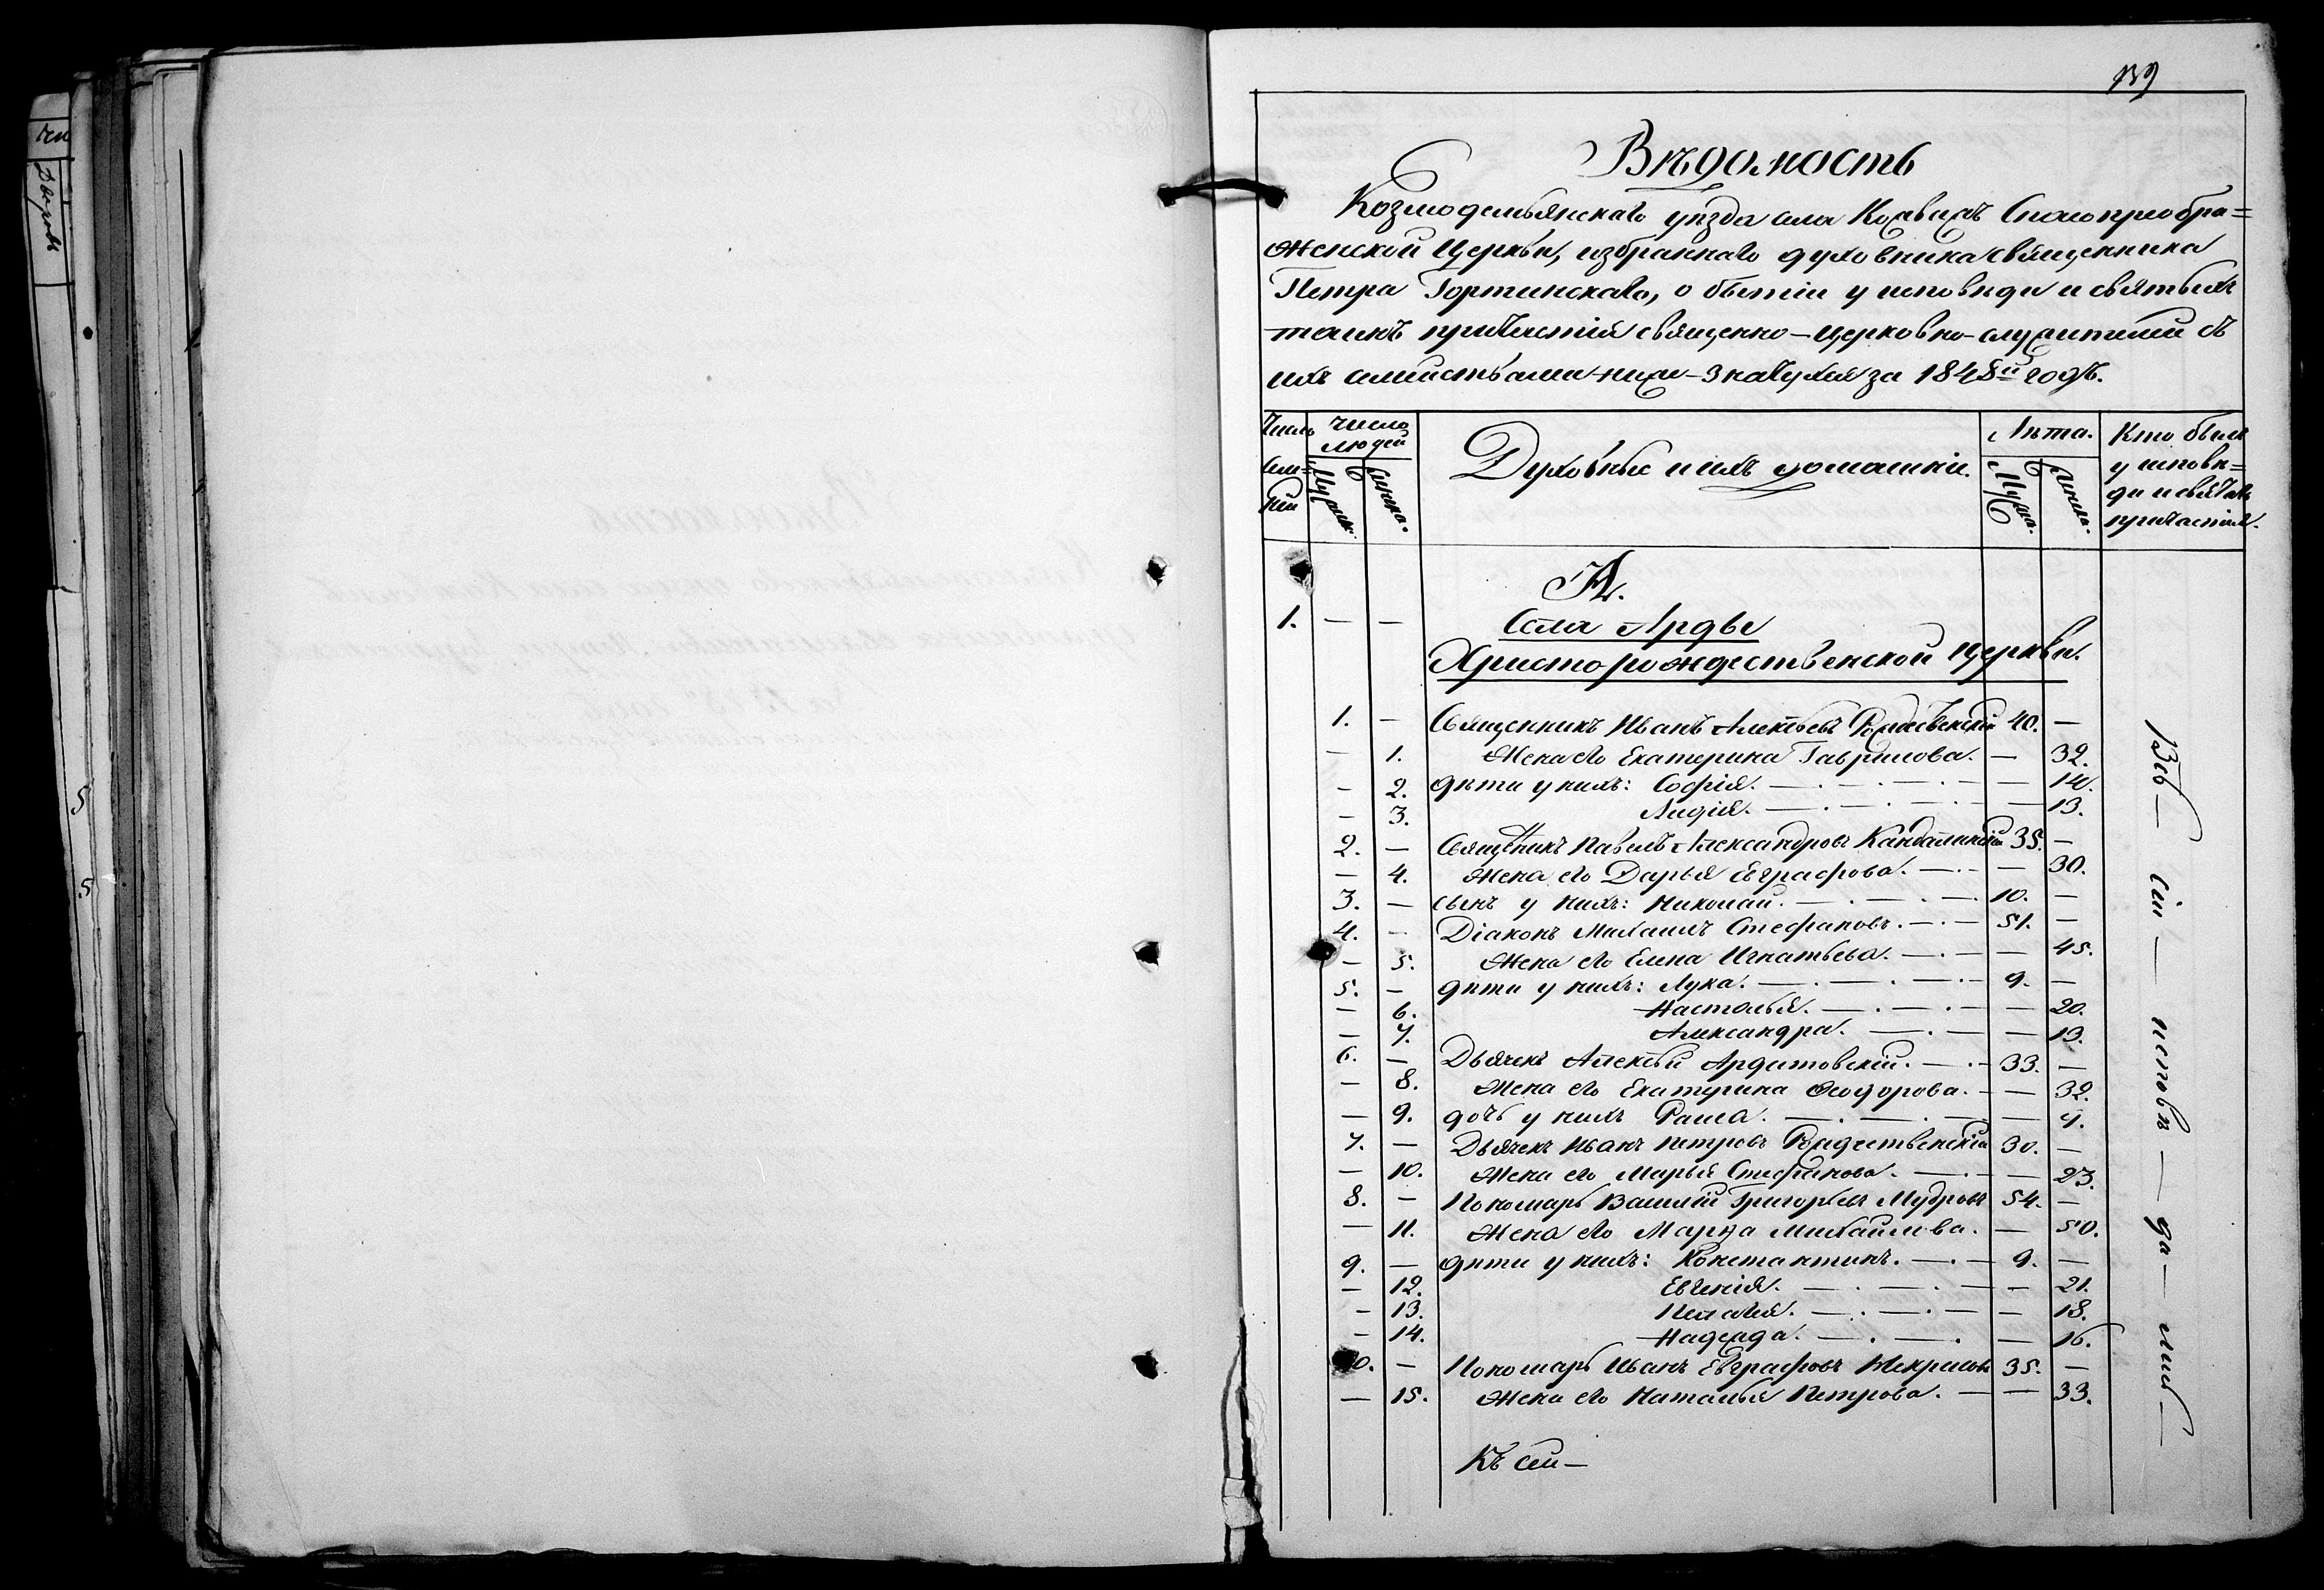 139
Вѣдомость
Козмодемьянскаго уѣзда села Спасопреобра=
женской Церкви, избраннаго духовника священника
Петра Гортинскаго, о бытіи у исповѣди и святыхъ
таинъ причастія священно-церковно-служителей съ
ихъ семействами ниже-значущихся за 1848й годъ.
Число семей
число людей
Мужска.
Женска.
Духовные и ихъ домашніи.
Лѣта.
Мужс.
Женск.
Кто былъ
у исповѣ=
ди и святаго
причастія.
А.
1. — — Села Арды
Христорождественской церкви.
1. — Священникъ Иванъ Алексѣевъ 40. —
— 1. Жена его Екатерина Гаврилова. — 32.
— 2. дѣти у нихъ: Софія. — 14.
— 3. Лидія. — 13.
2. — Священникъ Павелъ Александровъ 35. —
— 4. Жена его Дарья Евграфова. — 30.
3. — сынъ у нихъ: Николай. 10. —
4. — Діаконъ Михаилъ Стефановъ. 51. —
— 5. Жена его Елена Игнатьева. — 45.
5. — дѣти у нихъ: Лука. 9. —
— 6. Настасья. — 20.
— 7. Александра. — 13.
6. — Дьячекъ Алексѣй Ардатовскій. 33. —
— 8. Жена его Екатерина Ѳеодорова. — 32.
— 9. дочь у нихъ Раиса. — 4.
7. — Дьячекъ Иванъ Петровъ Рождественскій 30. —
— 10. Жена его Марья Стефанова. — 23.
8. — Пономарь Василій Григорьевъ Мудровъ 54. —
— 11. Жена его Марѳа Михайлова. — 50.
9. — дѣти у нихъ: Константинъ. 9. —
— 12. Евгенія. — 21.
— 13. Пелагія. — 18.
— 14. Надежда. — 16.
10. — Пономарь Иванъ Евграфовъ Некрасовъ 35. —
— 15. Жена его Наталья Петрова. — 33.
Къ сей —
Всѣ — сіи — исповѣ — да — лись —